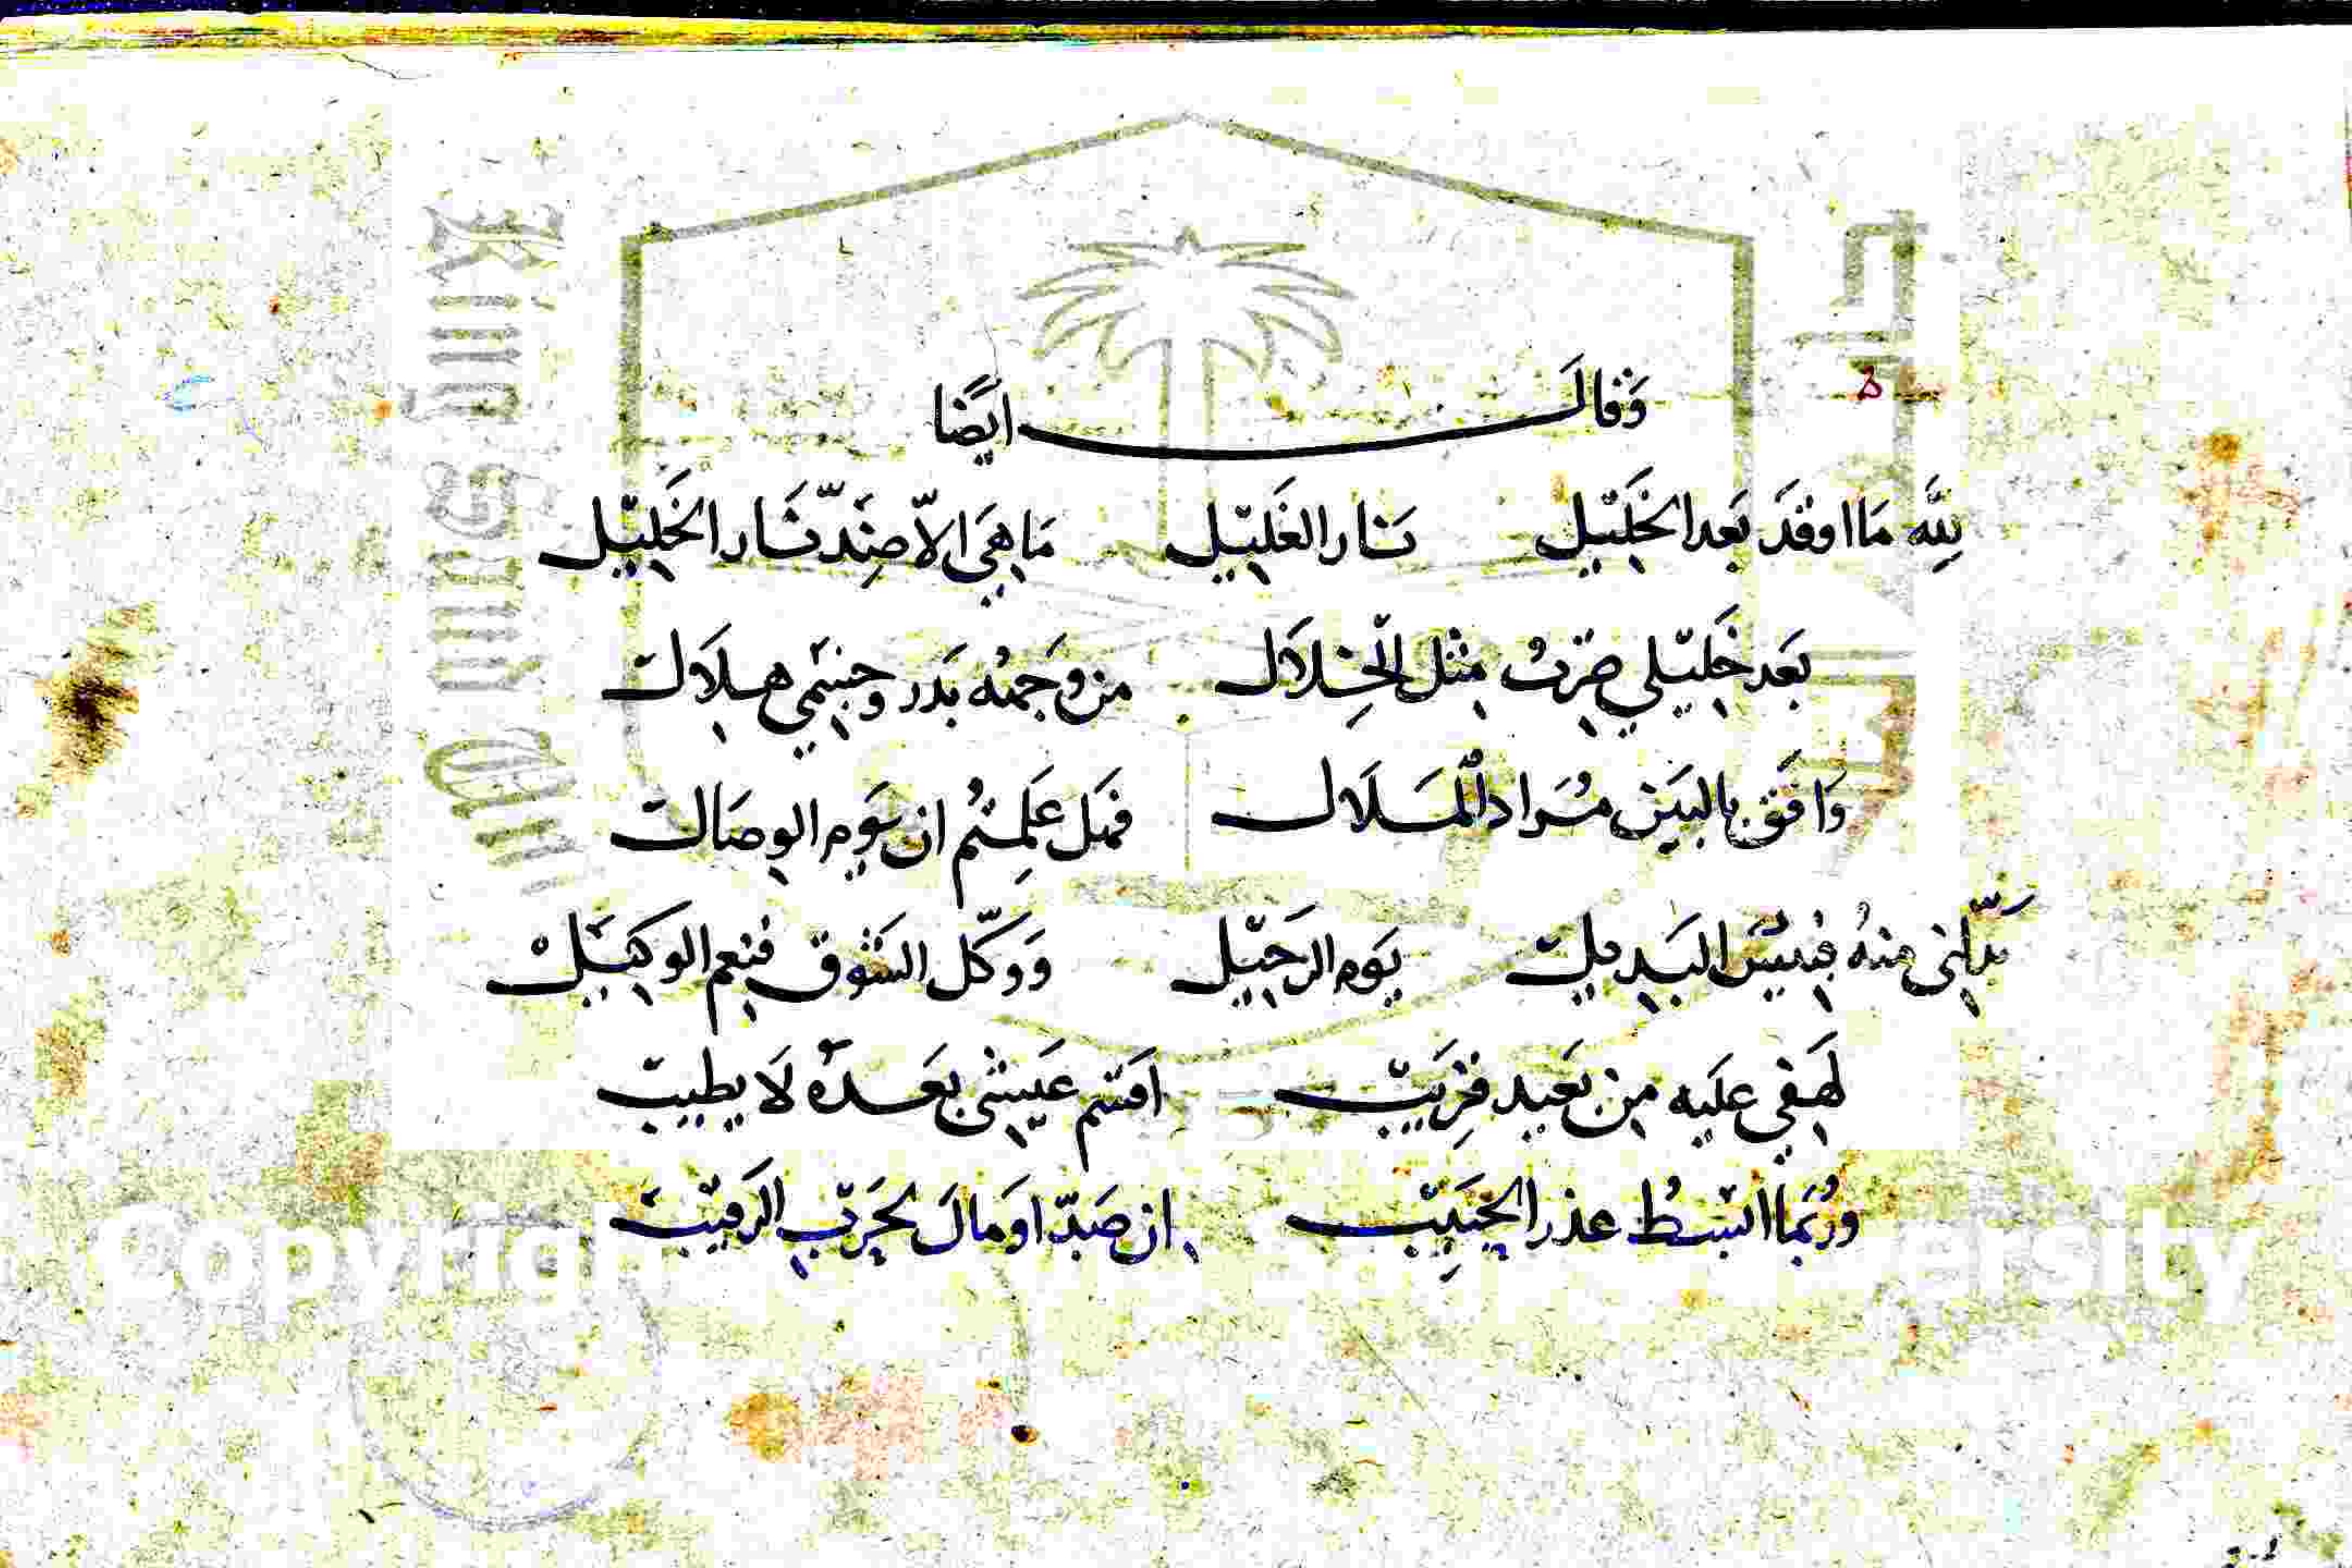 وَقالَ ايَضًا
لِلَّه مَا اوقدَ بَعد الخَليَل نَار الغَليَل مَا هيَ الاّ ضِدّ نَار الخَلِيَل
بَعد خَليَلي صِرتُ مثل الخِلاَل من وَجهُه بَدر وجسَمي هلاَل
وَافَق بالبيَن مُرَاد المَلاَل فهَل عَلِمتُم ان يَوم الوصَال
بدّلني منهُ فبئسَ البَديل يَوم الرَحيَل وَوكّل الشَوق فنِعم الوكيَل
لَهفي عليَه من بَعيد قرِيَب اقسَم عَيشي بعَدهُ لاَ يطيب
ورُبَما ابسُط عذر الحَبيِب ان صَدّ اوَ مالَ لحَرب الرَقيَب
King Saud
Copyrigh
ersity